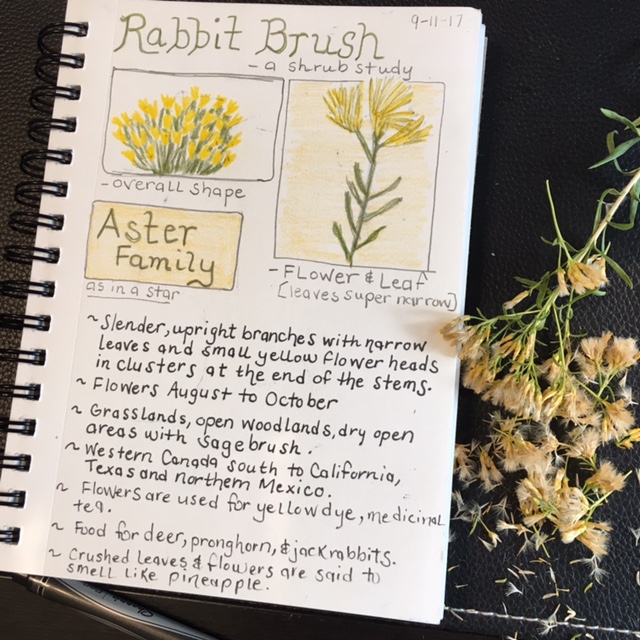 9-11-17
Rabbit Brush
- a shrub study
- overall shape
Aster
Family
as in a star
- Flower & Leaf
[leaves super narrow]
~ Slender, upright branches with narrow
leaves and small yellow flower heads
in clusters at the end of the stems.
~ Flowers August to October
~ Grasslands, open woodlands, dry open
areas with sagebrush.
~ Western Canada south to California,
Texas and northern Mexico.
~ Flowers are used for yellow dye, medicinal
tea.
~ Food for deer, pronghorn, & jackrabbits.
~ Crushed leaves & flowers are said to
smell like pineapple.